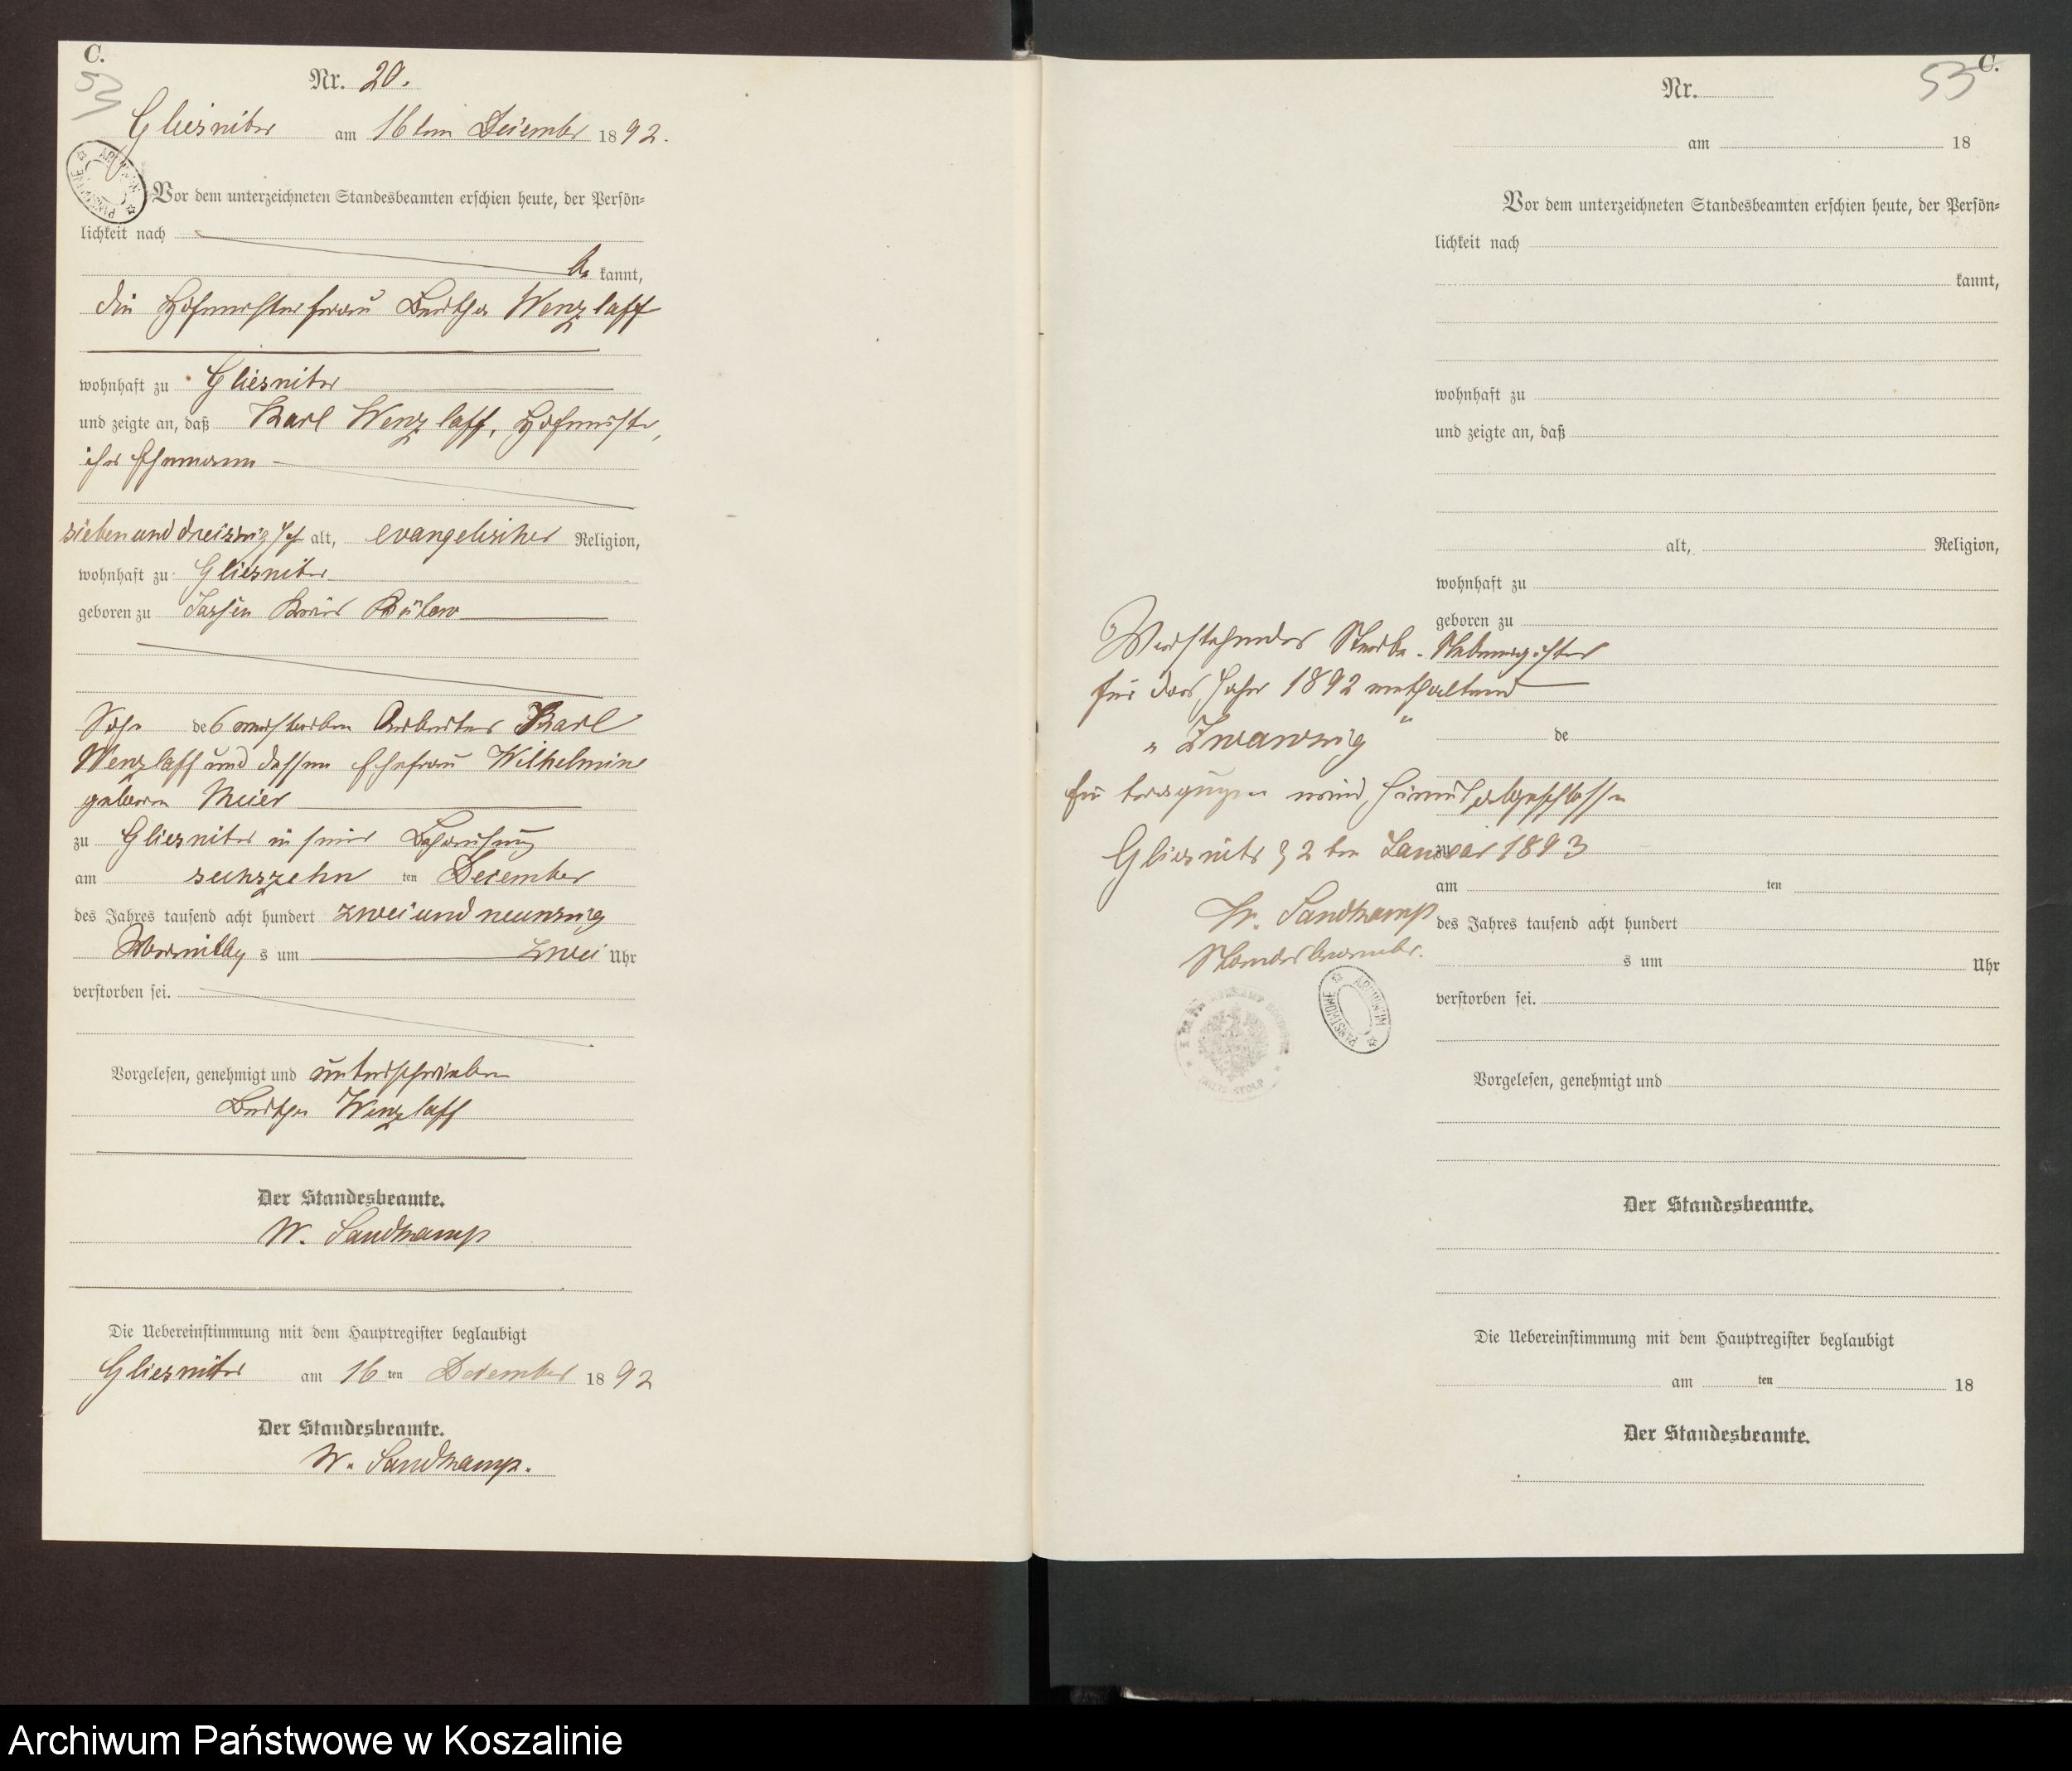 C.
52
Nr. 20.
Gliesnitz am 16ten December 1892.
Vor dem unterzeichneten Standesbeamten erschien heute, der Persön-
lichkeit nach
be kannt,
die Hofmeisterfrau Bertha Wenzlaff
wohnhaft zu Gliesnitz
und zeigte an, daß Karl Wenzlaff, Hofmeister,
ihr Ehemann
sieben und dreiszig Jahr alt, evangelischer Religion,
wohnhaft zu Gliesnitz
geboren zu Jassen Kreis Bütow
Sohn des verstorben Arbeiter Karl
Wenzlaff und dessen Ehefrau Wilhelmine
geboren Meier
zu Gliesnitz in seiner Behausung
am sechszehn ten December
des Jahres tausend acht hundert zwei und neunzig
Vormittag s um zwei Uhr
verstorben sei.
Vorgelesen, genehmigt und unterschrieben
Bertha Wenzlaff
Der Standesbeamte.
W. Sandkamp
Die Uebereinstimmung mit dem Hauptregister beglaubigt
Gliesnitz am 16 ten December 1892
Der Standesbeamte.
W. Sandkamp.
C.
53
Nr.
am 18
Vor dem unterzeichneten Standesbeamten erschien heute, der Persön-
lichkeit nach
kannt,
wohnhaft zu
und zeigte an, daß
alt, Religion,
wohnhaft zu
geboren zu
Vorstehendes Sterbe-Nebenregister
für das Jahr 1892 enthaltend
"Zwanzig"
de
Eintragungen wird hiermit abgeschlossen
Gliesnitz 2ten Januar 1893
zu
am ten
W. Sandkamp
des Jahres tausend acht hundert
Standesbeamter.
s um Uhr
verstorben sei.
ARCHIWUM PAŃSTWOWE
Vorgelesen, genehmigt und
Der Standesbeamte.
Die Uebereinstimmung mit dem Hauptregister beglaubigt
am ten 18
Der Standesbeamte.
Archiwum Państwowe w Koszalinie